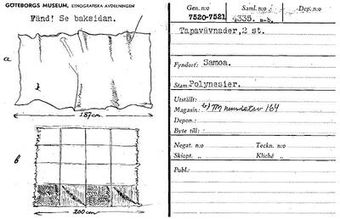 GÖTEBORGS MUSEUM, ETNOGRAFISKA AVDELNINGEN
Vänd! Se baksidan.
a
157 cm
b
200 cm
Gen. n:o
7520-7521
Saml. n:o
4335. a-b.
Dep. n:o
Tapavävnader, 2 st.
Fyndort: Samoa.
Stam Polynesier.
Utställt:
Magasin:
164
Deponent:
Byte till:
Negat. n:o
Teckn. n:o
Skiopt. „
Kliché „
Publ.: